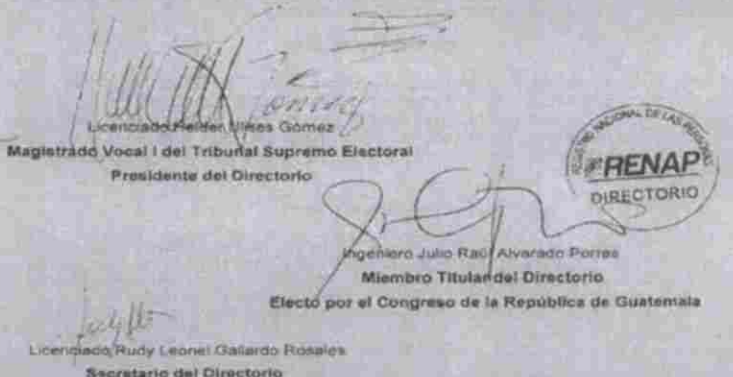 Licenciado Helder Ulises Gómez
Magistrado Vocal I del Tribunal Supremo Electoral
Presidente del Directorio
REGISTRO NACIONAL DE LAS PERSONAS
RENAP
DIRECTORIO
Ingeniero Julio Raúl Alvarado Porres
Miembro Titular del Directorio
Electo por el Congreso de la República de Guatemala
Licenciado Rudy Leonel Gallardo Rosales
Secretario del Directorio